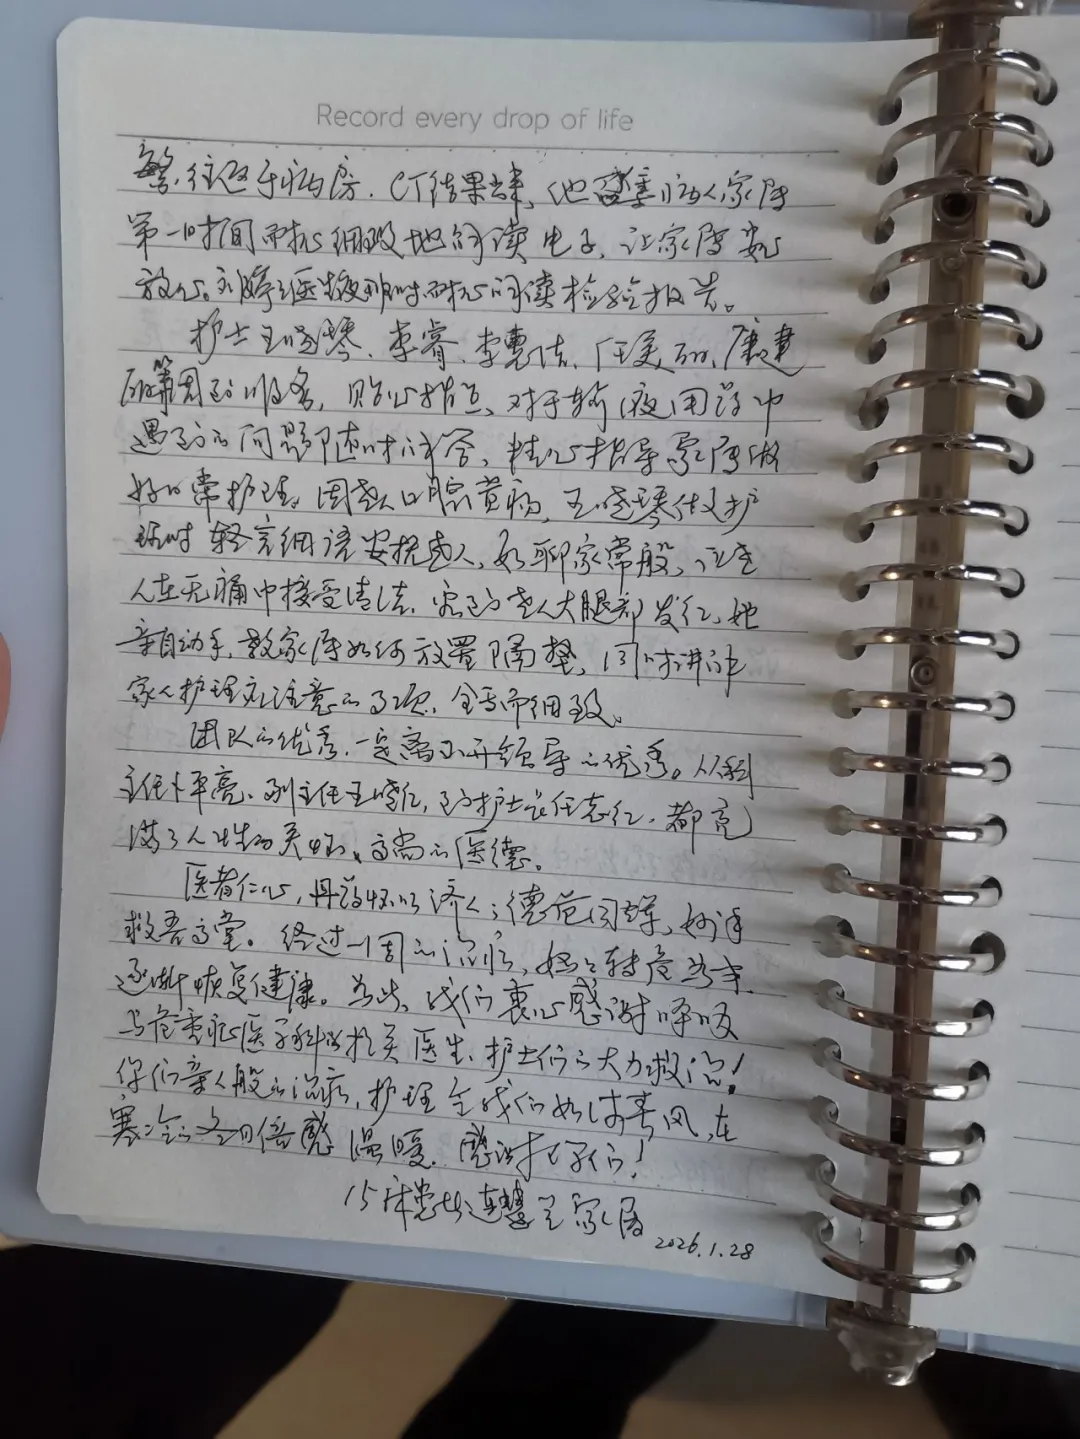 Record every drop of life
繁,往返于病房。CT结果出来,他尊重病人家属
第一时间耐心细致地解读电子,让家属安心
放心。刘婷医生及时耐心解读检验报告。
护士王晓琴、李睿、李惠洁、任美丽、康建
丽等周到服务,贴心指点,对于输液用药中
遇到的问题随时解答,精心指导家属做
好日常护理。因患口腔黄物,王晓琴做护
理时轻言细语安抚老人,如聊家常般,让老
人在无痛中接受清洁。看到老人大腿部发红,她
亲自动手,教家属如何放置隔垫,同时讲解
家人护理应注意的事项,全面而细致。
团队的优秀,一定离不开领导的优秀。从科
主任卜平亮、副主任王晓红,到护士长任志红,都充
满了人性的美好、高尚的医德。
医者仁心,丹药怀以济人;德范同辉,妙手
救吾高堂。经过一周的治疗,妈妈转危为安,
逐渐恢复健康。为此,我们衷心感谢呼吸
与危重症医学科的相关医生、护士们的大力救治!
你们亲人般的治疗,护理令我们如沐春风,在
寒冷的冬日倍感温暖。感谢你们!
15床患者连慧兰家属
2026.1.28